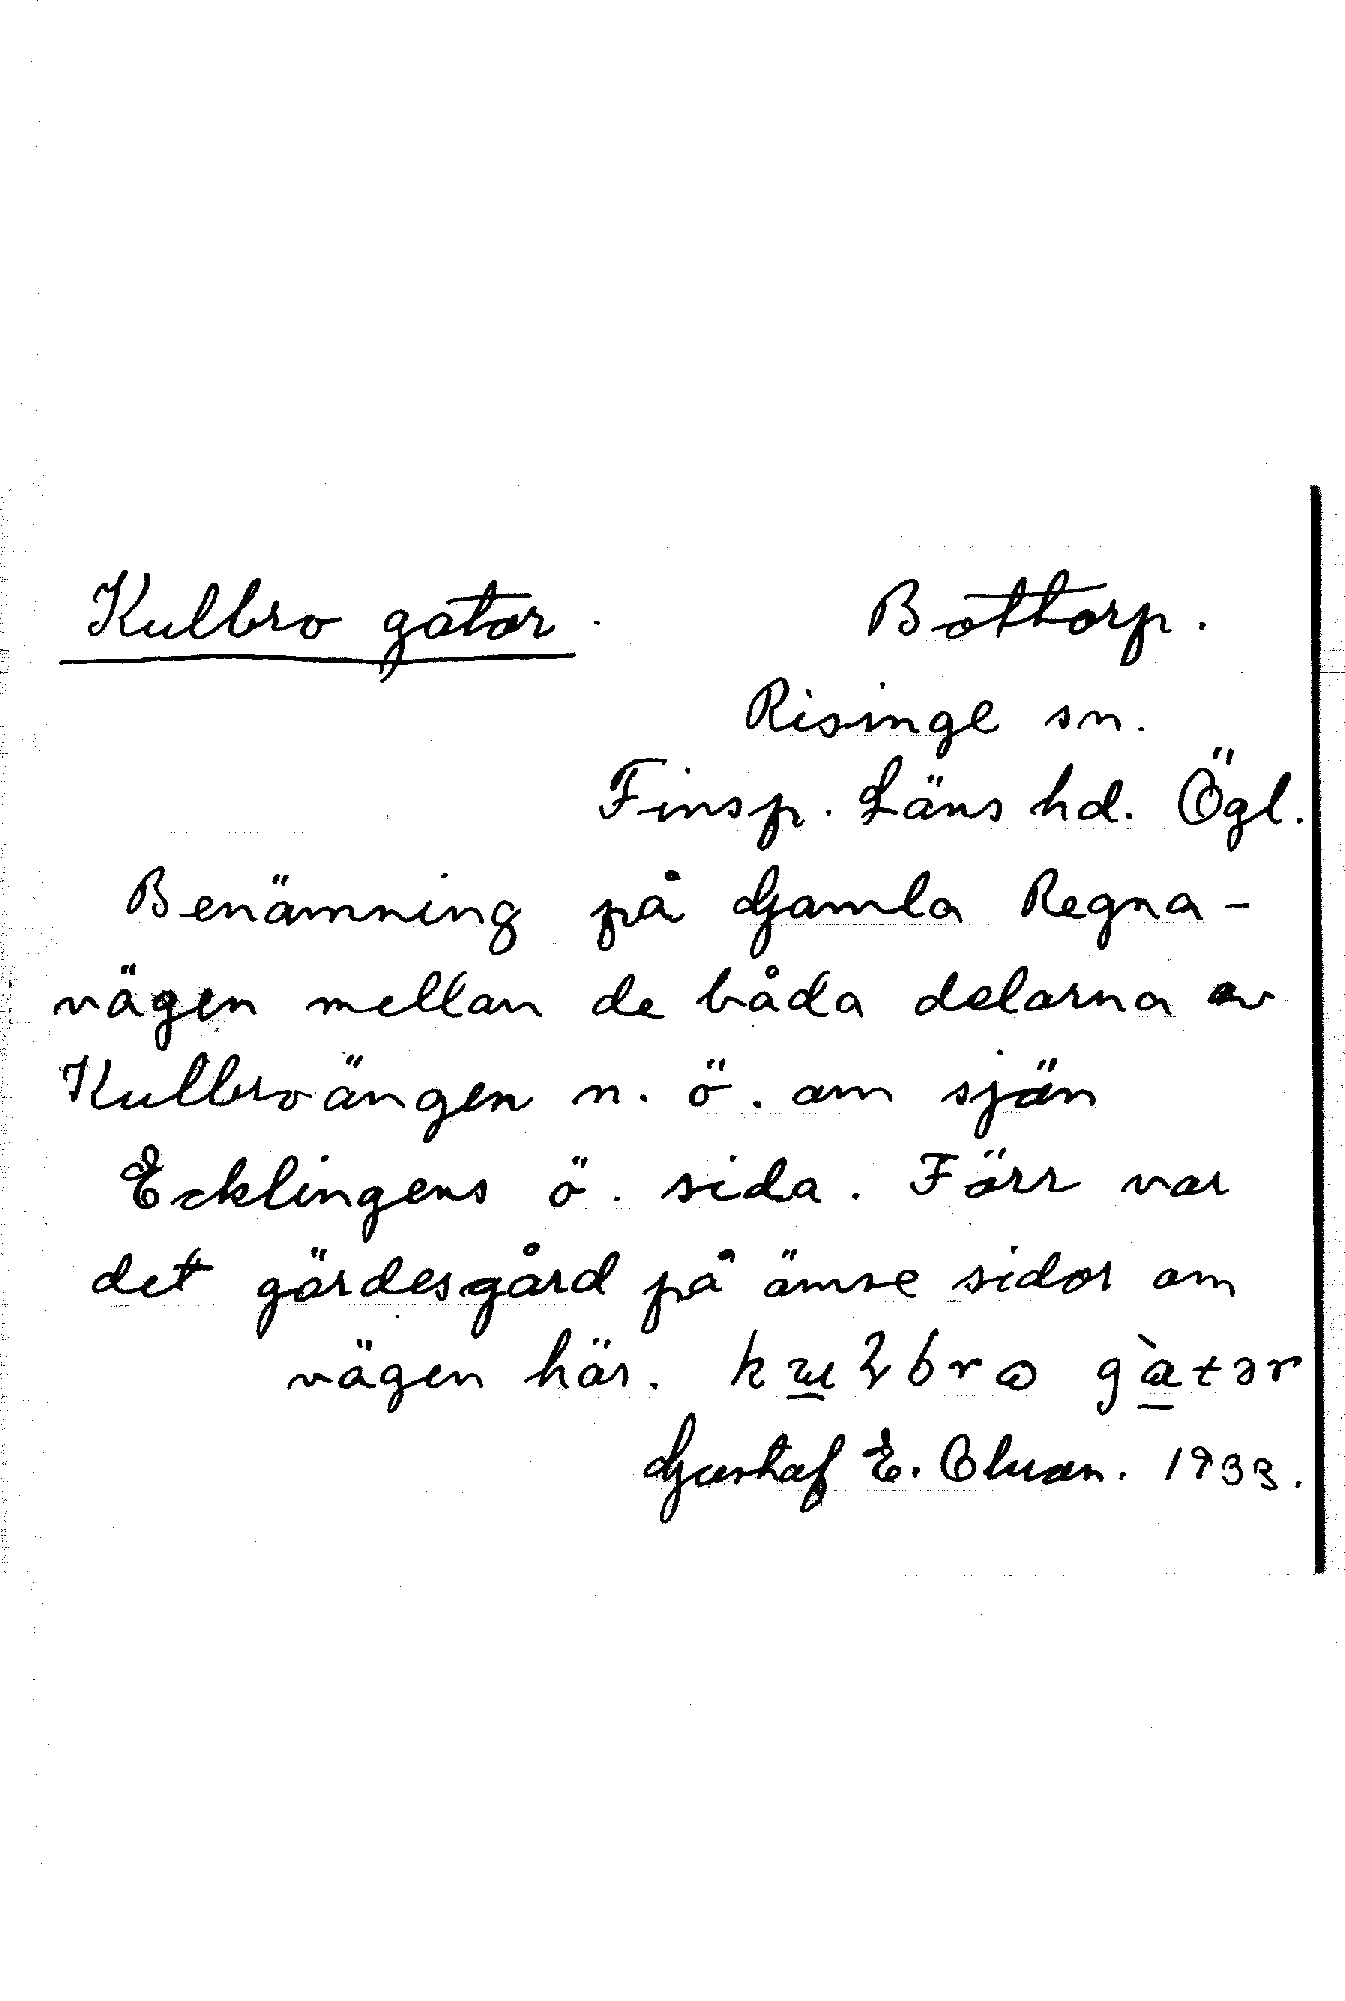 Kulbro gator. Bottorp.
Risinge sn.
Finsp. Läns hd. Ögl.
Benämning på Gamla Regna-
vägen mellan de båda delarna av
Kulbroängen n. ö. om sjön
Ecklingens ö. sida. Förr var
det gärdesgård på ömse sidor om
vägen här.
Gustaf E. 1933.